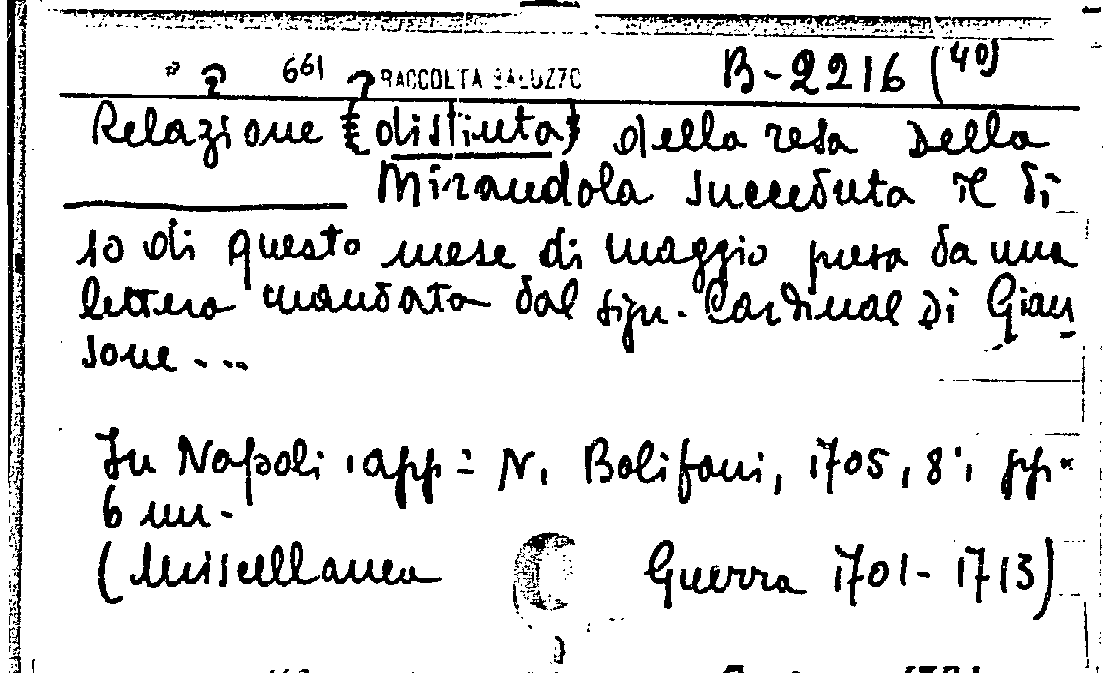 661 RACCOLTA SALUZZO B-2216 (40)
Relazione (distinta) della resa della
Mirandola succeduta il di
10 di questo mese di maggio presa da una
lettera mandata dal sign. Cardinal di Gian
sone ...
In Napoli, app: N. Bolifoni, 1705, 8°, pp.
6 nn.
(Miscellanea Guerra 1701-1713)